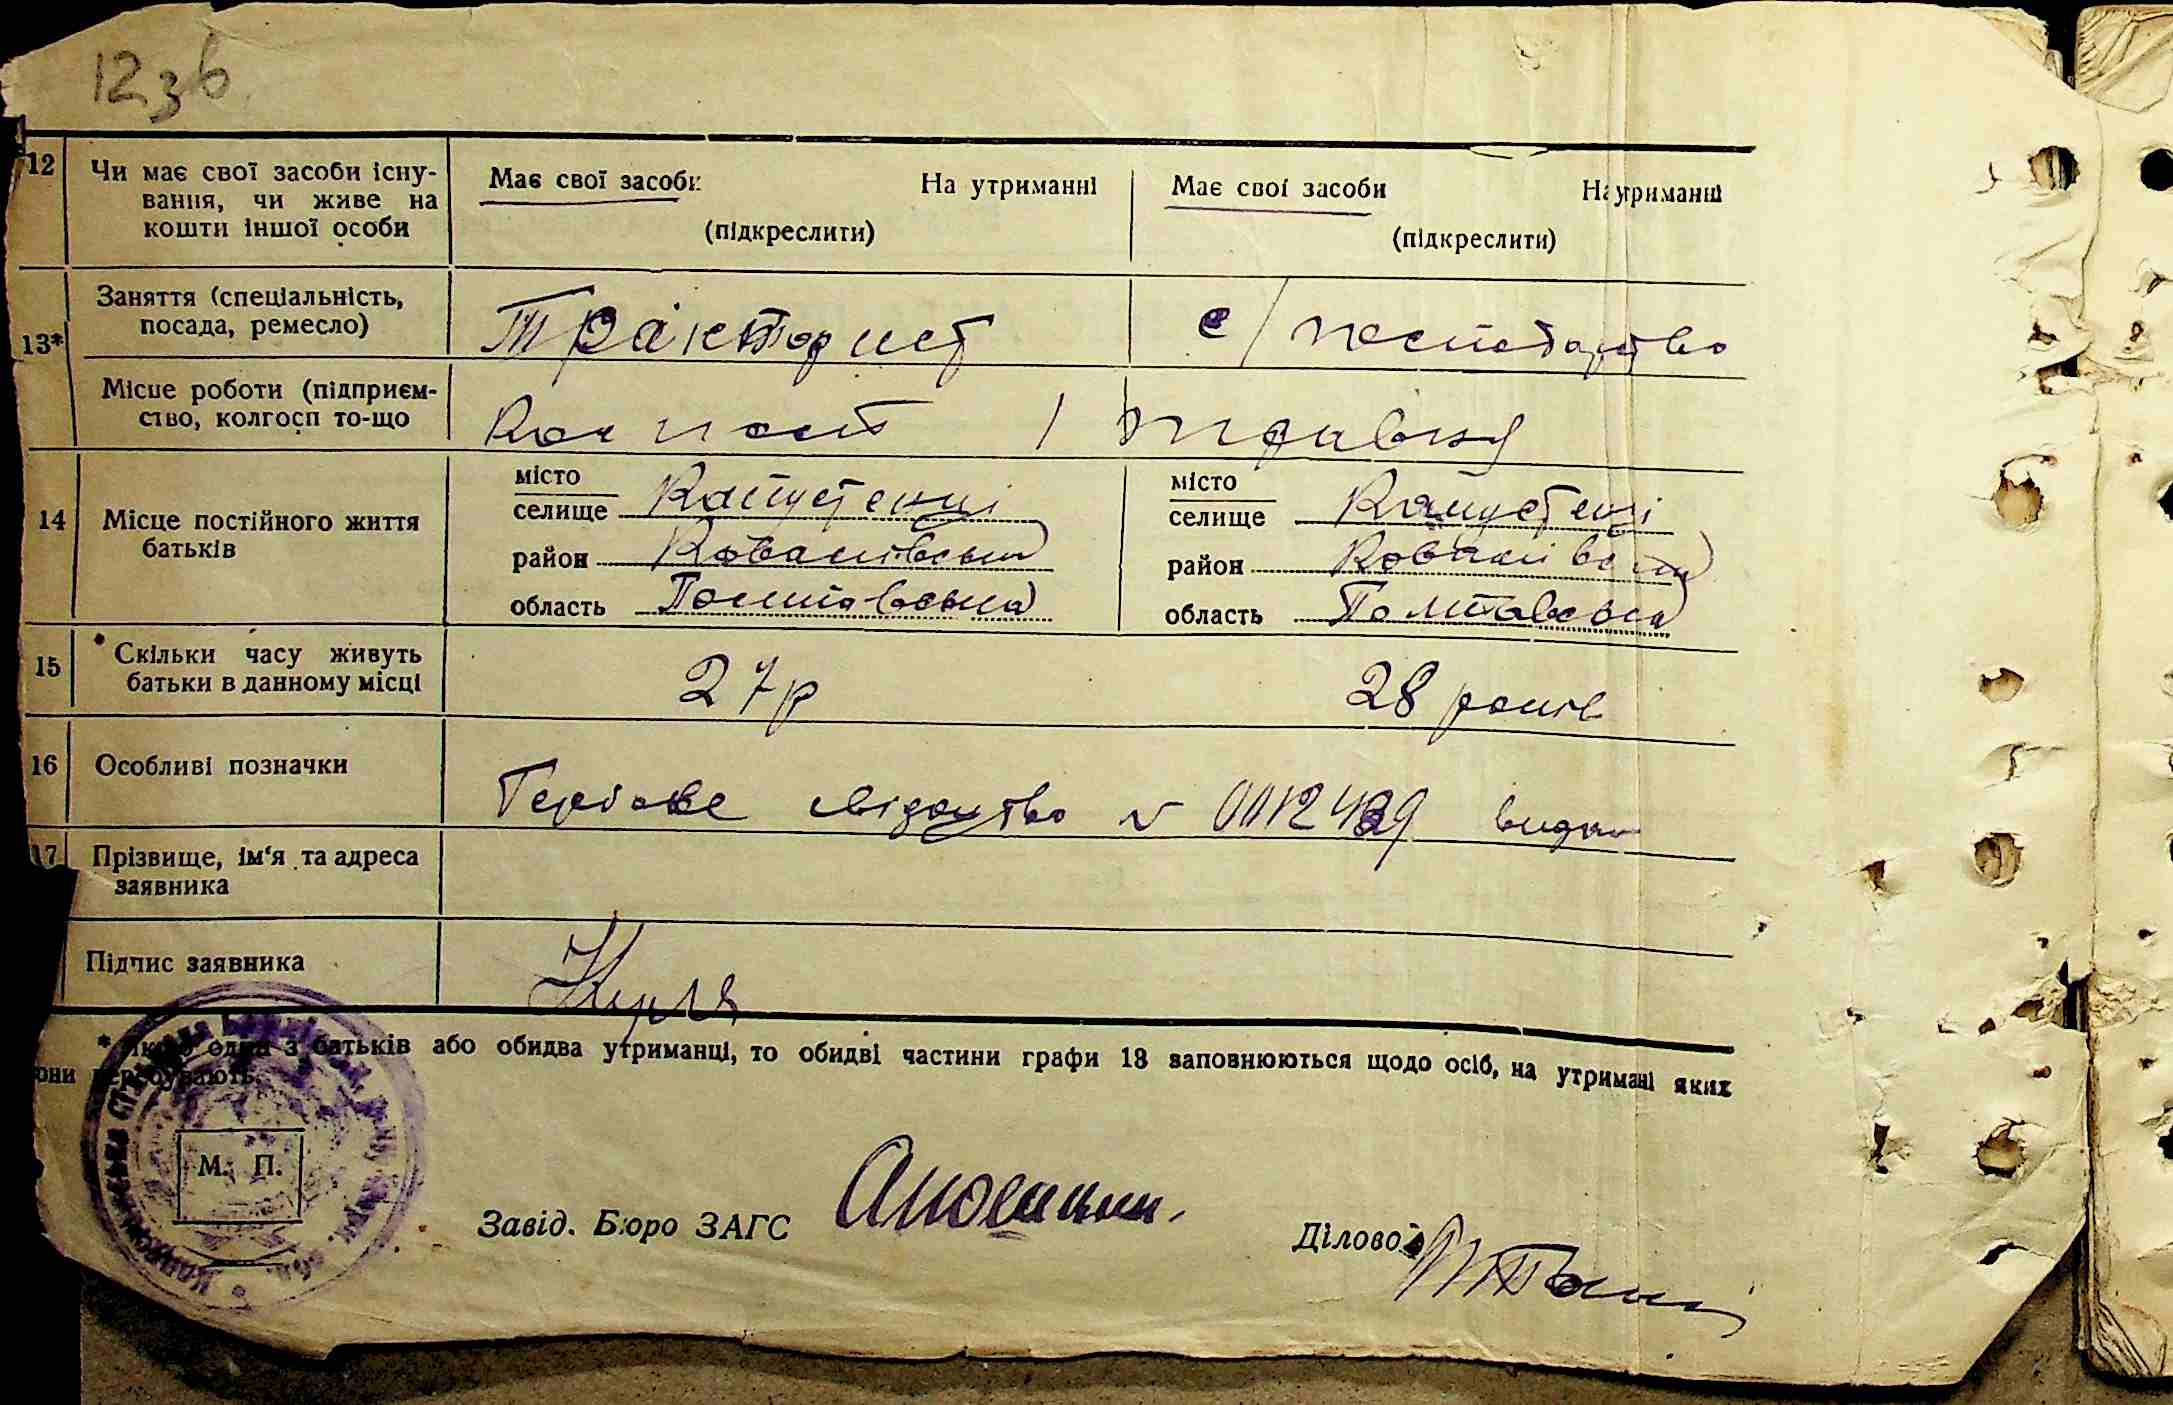 12зв
12 Чи має свої засоби існу- Має свої засоби На утриманні Має свої засоби На утриманні
вання, чи живе на
кошти іншої особи (підкреслити) (підкреслити)
13* Заняття (спеціальність,
посада, ремесло) Тракторист с/господарство
Місце роботи (підприєм-
ство, колгосп то-що Колгосп 1 травня
14 Місце постійного життя
батьків
місто
селище Капустенці
район Ковалівський
область Полтавська
місто
селище Капустенці
район Ковалівський
область Полтавська
15 * Скільки часу живуть
батьки в данному місці 27р 28 років
16 Особливі позначки Гербове свідоцтво N видан
17 Прізвище, ім'я та адреса
заявника
Підпис заявника
* Якщо один з батьків або обидва утриманці, то обидві частини графи 13 заповнюються щодо осіб, на утримані яких
вони перебувають.
М. П.
Завід. Бюро ЗАГС
Діловод